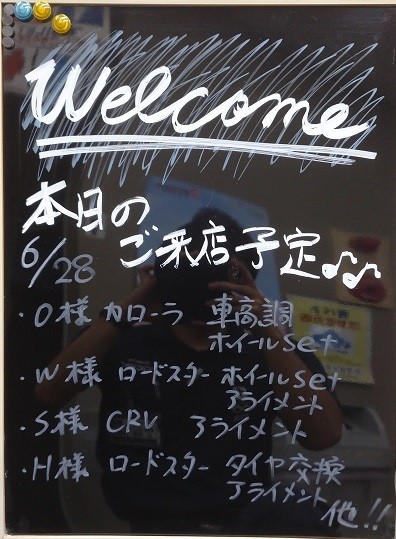 Welcome
本日の
6/28 ご来店予定♪♪
・O様 カローラ 車高調
ホイールset
・W様 ロードスター ホイールset
アライメント
・S様 CRV アライメント
・H様 ロードスター タイヤ交換
アライメント
他!!